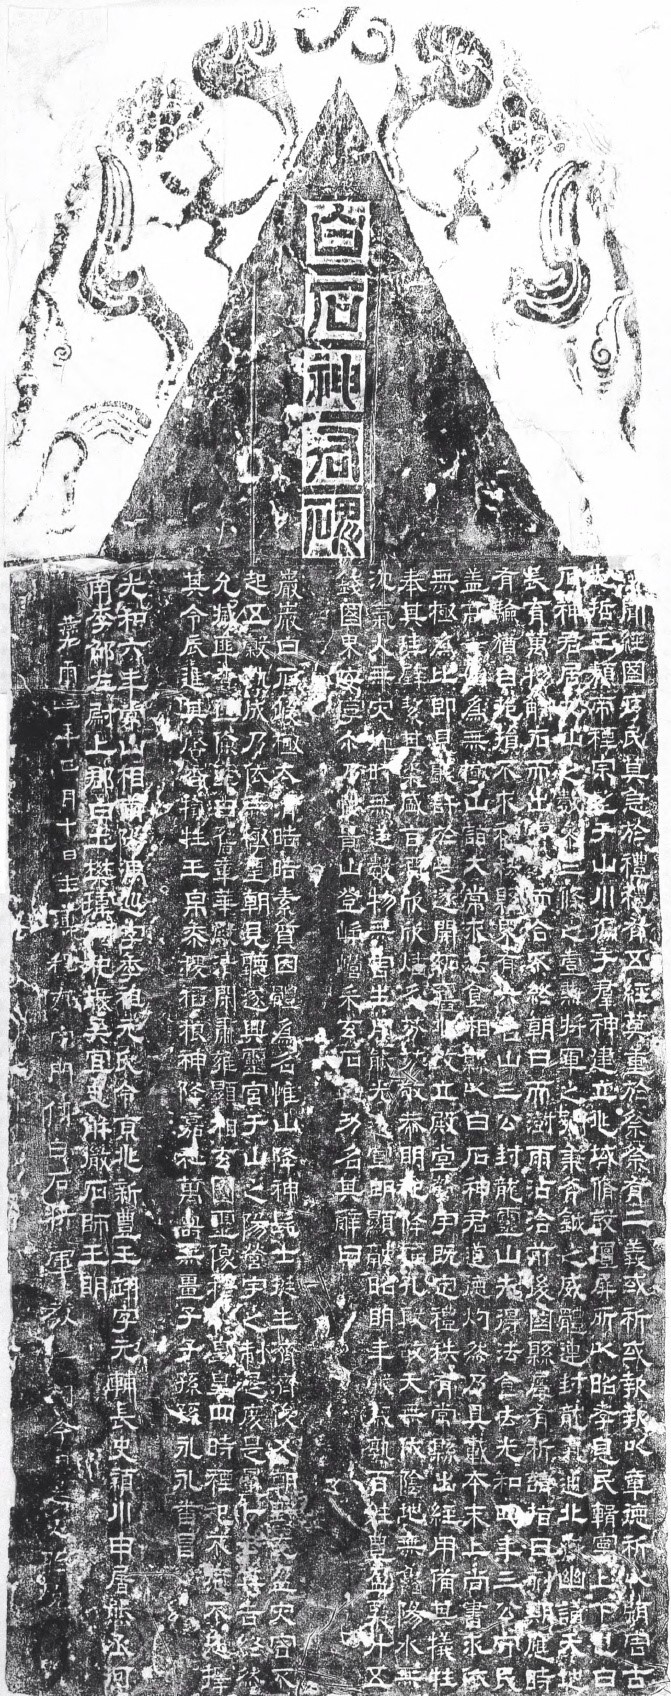 白石神君碑
蓋聞經國序民莫急於禮禮有五經莫重於祭祭有二義或祈或報報以章德祈以弭害古
先哲王類帝禋宗望于山川徧于群神建立兆域脩設壇屏所以昭孝息民輯寧上下也白
石神君居九山之數參三條之壹兼將軍之號秉斧鉞之威體連封龍氣通北嶽幽讚天地
長育萬物觸石而出膚寸而合不終朝日而澍雨沾洽前後國縣屢有祈請指日刻期應時
有驗猶自抱損不求禮秩縣界有六名山三公封龍靈山先得法食去光和四年三公守民
蓋高等始為無極山詣大常求法食相縣以白石神君道德灼然乃具載本末上尚書求依
無極為比即見聽許於是遂開拓舊兆改立殿堂營宇既定禮秩有常縣出經用備其犧牲
奉其珪璧絜其粢盛旨酒欣欣燔炙芬芬敬恭明祀降福孔殷故天無伏陰地無鮮陽水無
沉氣火無災燀時無逆數物無害生用能光遠宣朗顯融昭明年穀歲熟百姓豐盈粟升五
錢國界安寧爾乃陟景山登崢嶸采玄石勒功名其辭曰
巖巖白石峻極太清皓皓素質因體為名惟山降神髦士挺生濟濟俊乂朝野充盈災害不
起五穀熟成乃依無極聖朝見聽遂興靈宮于山之陽營宇之制是度是量卜云其吉終然
允臧匪奢匪儉率由舊章華殿清閑肅雍顯相玄圖靈像穆穆皇皇四時禋祀不愆不忘擇
其令辰進其馨香犧牲玉帛黍稷稻粮神降嘉祉萬壽無畺子子孫孫永永番昌
光和六年常山相南陽馮巡字季祖元氏令京兆新豐王翊字元輔長史潁川申屠熊丞河
南李邵左尉上郡白土樊瑋祠祀掾吳宜史解微石師王明
燕元璽三年正月十日主簿程疵家門傳白石將軍教